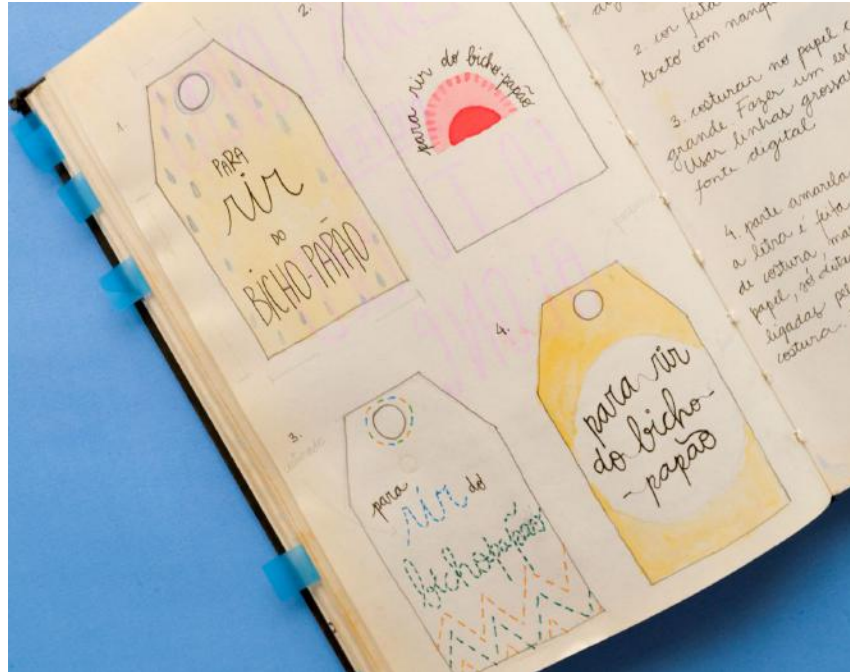 1.
PARA
rir
DO
BICHO-PAPÃO
2.
para rir do bicho-papão
3.
para rir do
bicho papão
4.
para rir
do bicho-
-papão
2. cor feita
texto com nanqu
3. costurar no papel e
grande. Fazer um est
Usar linhas grossas
fonte digital
4. parte amarela
a letra é feita
de costura, mas
papel, só dist
ligadas pel
costura.